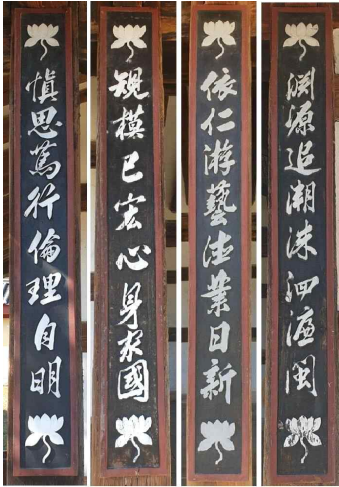 淵源追溯洙泗濂閩
依仁游藝德業日新
規模已宏心身家國
愼思篤行倫理自明